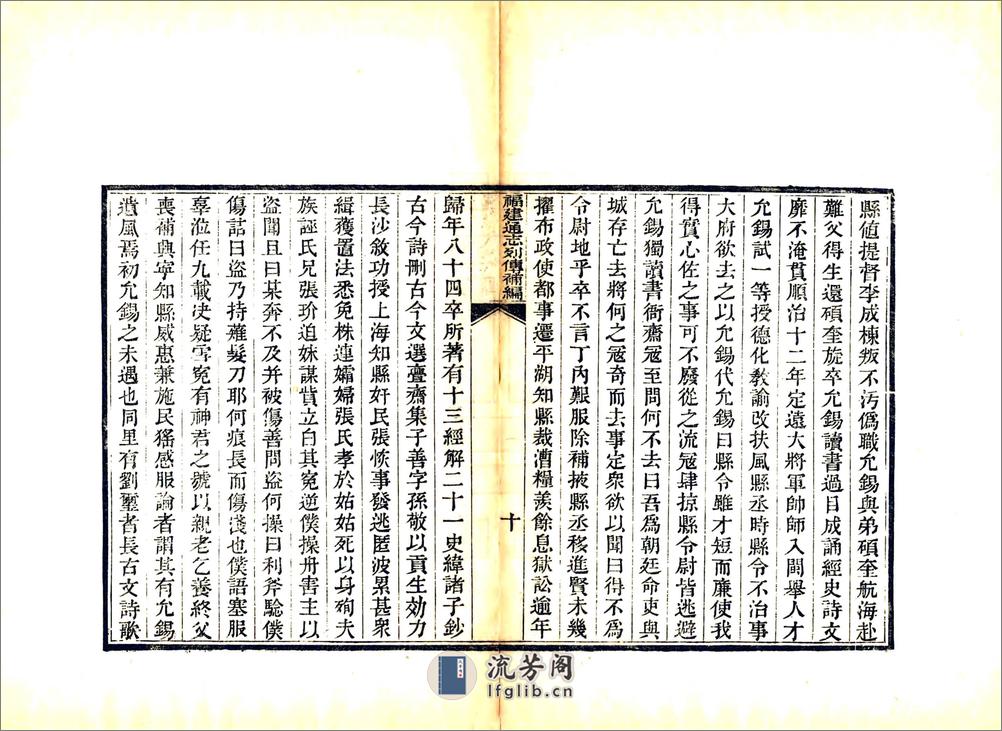 縣値提督李成棟叛不汚僞職允錫與弟碩奎航海赴
難父得生還碩奎旋卒允錫讀書過目成誦經史詩文
靡不淹貫順治十二年定遠大將軍帥師入閩舉人才
允錫試一等授德化教諭改扶風縣丞時縣令不治事
大府欲去之以允錫代允錫曰縣令雖才短而廉使我
得實心佐之事可不廢從之流寇肆掠縣令尉皆逃避
允錫獨讀書衙齋寇至問何不去曰吾爲朝廷命吏與
城存亡去將何之寇奇而去事定衆欲以聞曰得不爲
令尉地乎卒不言丁內艱服除補掖縣丞移進賢未幾
擢布政使都事遷平湖知縣裁漕糧羨餘息獄訟逾年
福建通志列傳補編
十
歸年八十四卒所著有十三經解二十一史緯諸子鈔
古今詩刪古今文選亹齋集子善字孫敬以貢生効力
長沙敘功授上海知縣奸民張恢事發逃匿波累甚衆
緝獲置法悉免株連孀婦張氏孝於姑姑死以身殉夫
族誣氏兄張玠迫妹謀貲立白其冤逆僕操舟害主以
盜聞且曰某奔不及并被傷善問盜何操曰利斧驗僕
傷詰曰盜乃持薙髮刀耶何痕長而傷淺也僕語塞服
辜涖任九載决疑雪冤有神君之號以親老乞養終父
喪補興寧知縣威惠兼施民猺感服論者謂其有允錫
遺風焉初允錫之未遇也同里有劉璽者長古文詩歌
流芳阁
lfglib.cn